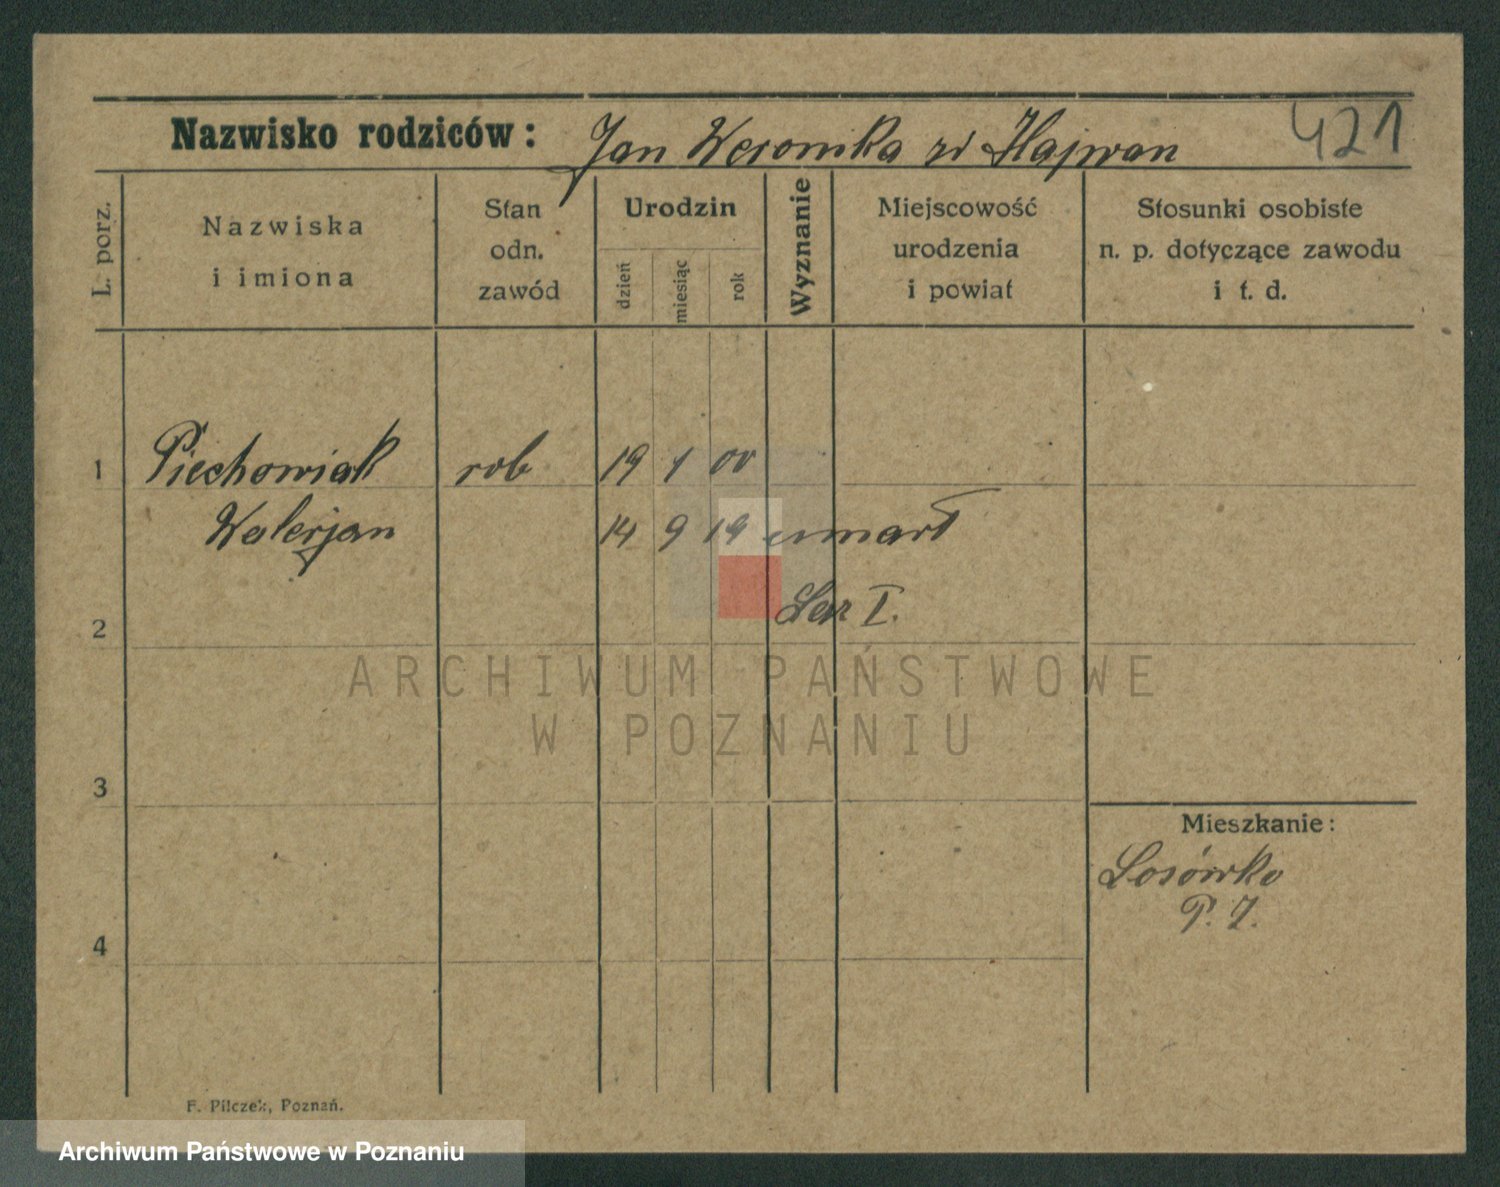 Nazwisko rodziców: Jan Weronika zd Hajwan 421
L. porz.
Nazwiska
i imiona
Stan
odn.
zawód
Urodzin
dzień
miesiąc
rok
Wyznanie
Miejscowość
urodzenia
i powiat
Stosunki osobiste
n. p. dotyczące zawodu
i t. d.
1 Piechowiak rob 19 1 00
Walerjan 14 9 19 umarł
Laz I.
2
ARCHIWUM PAŃSTWOWE
W POZNANIU
3
Mieszkanie:
Losówko
P. Z.
4
F. Pilczek, Poznań.
Archiwum Państwowe w Poznaniu